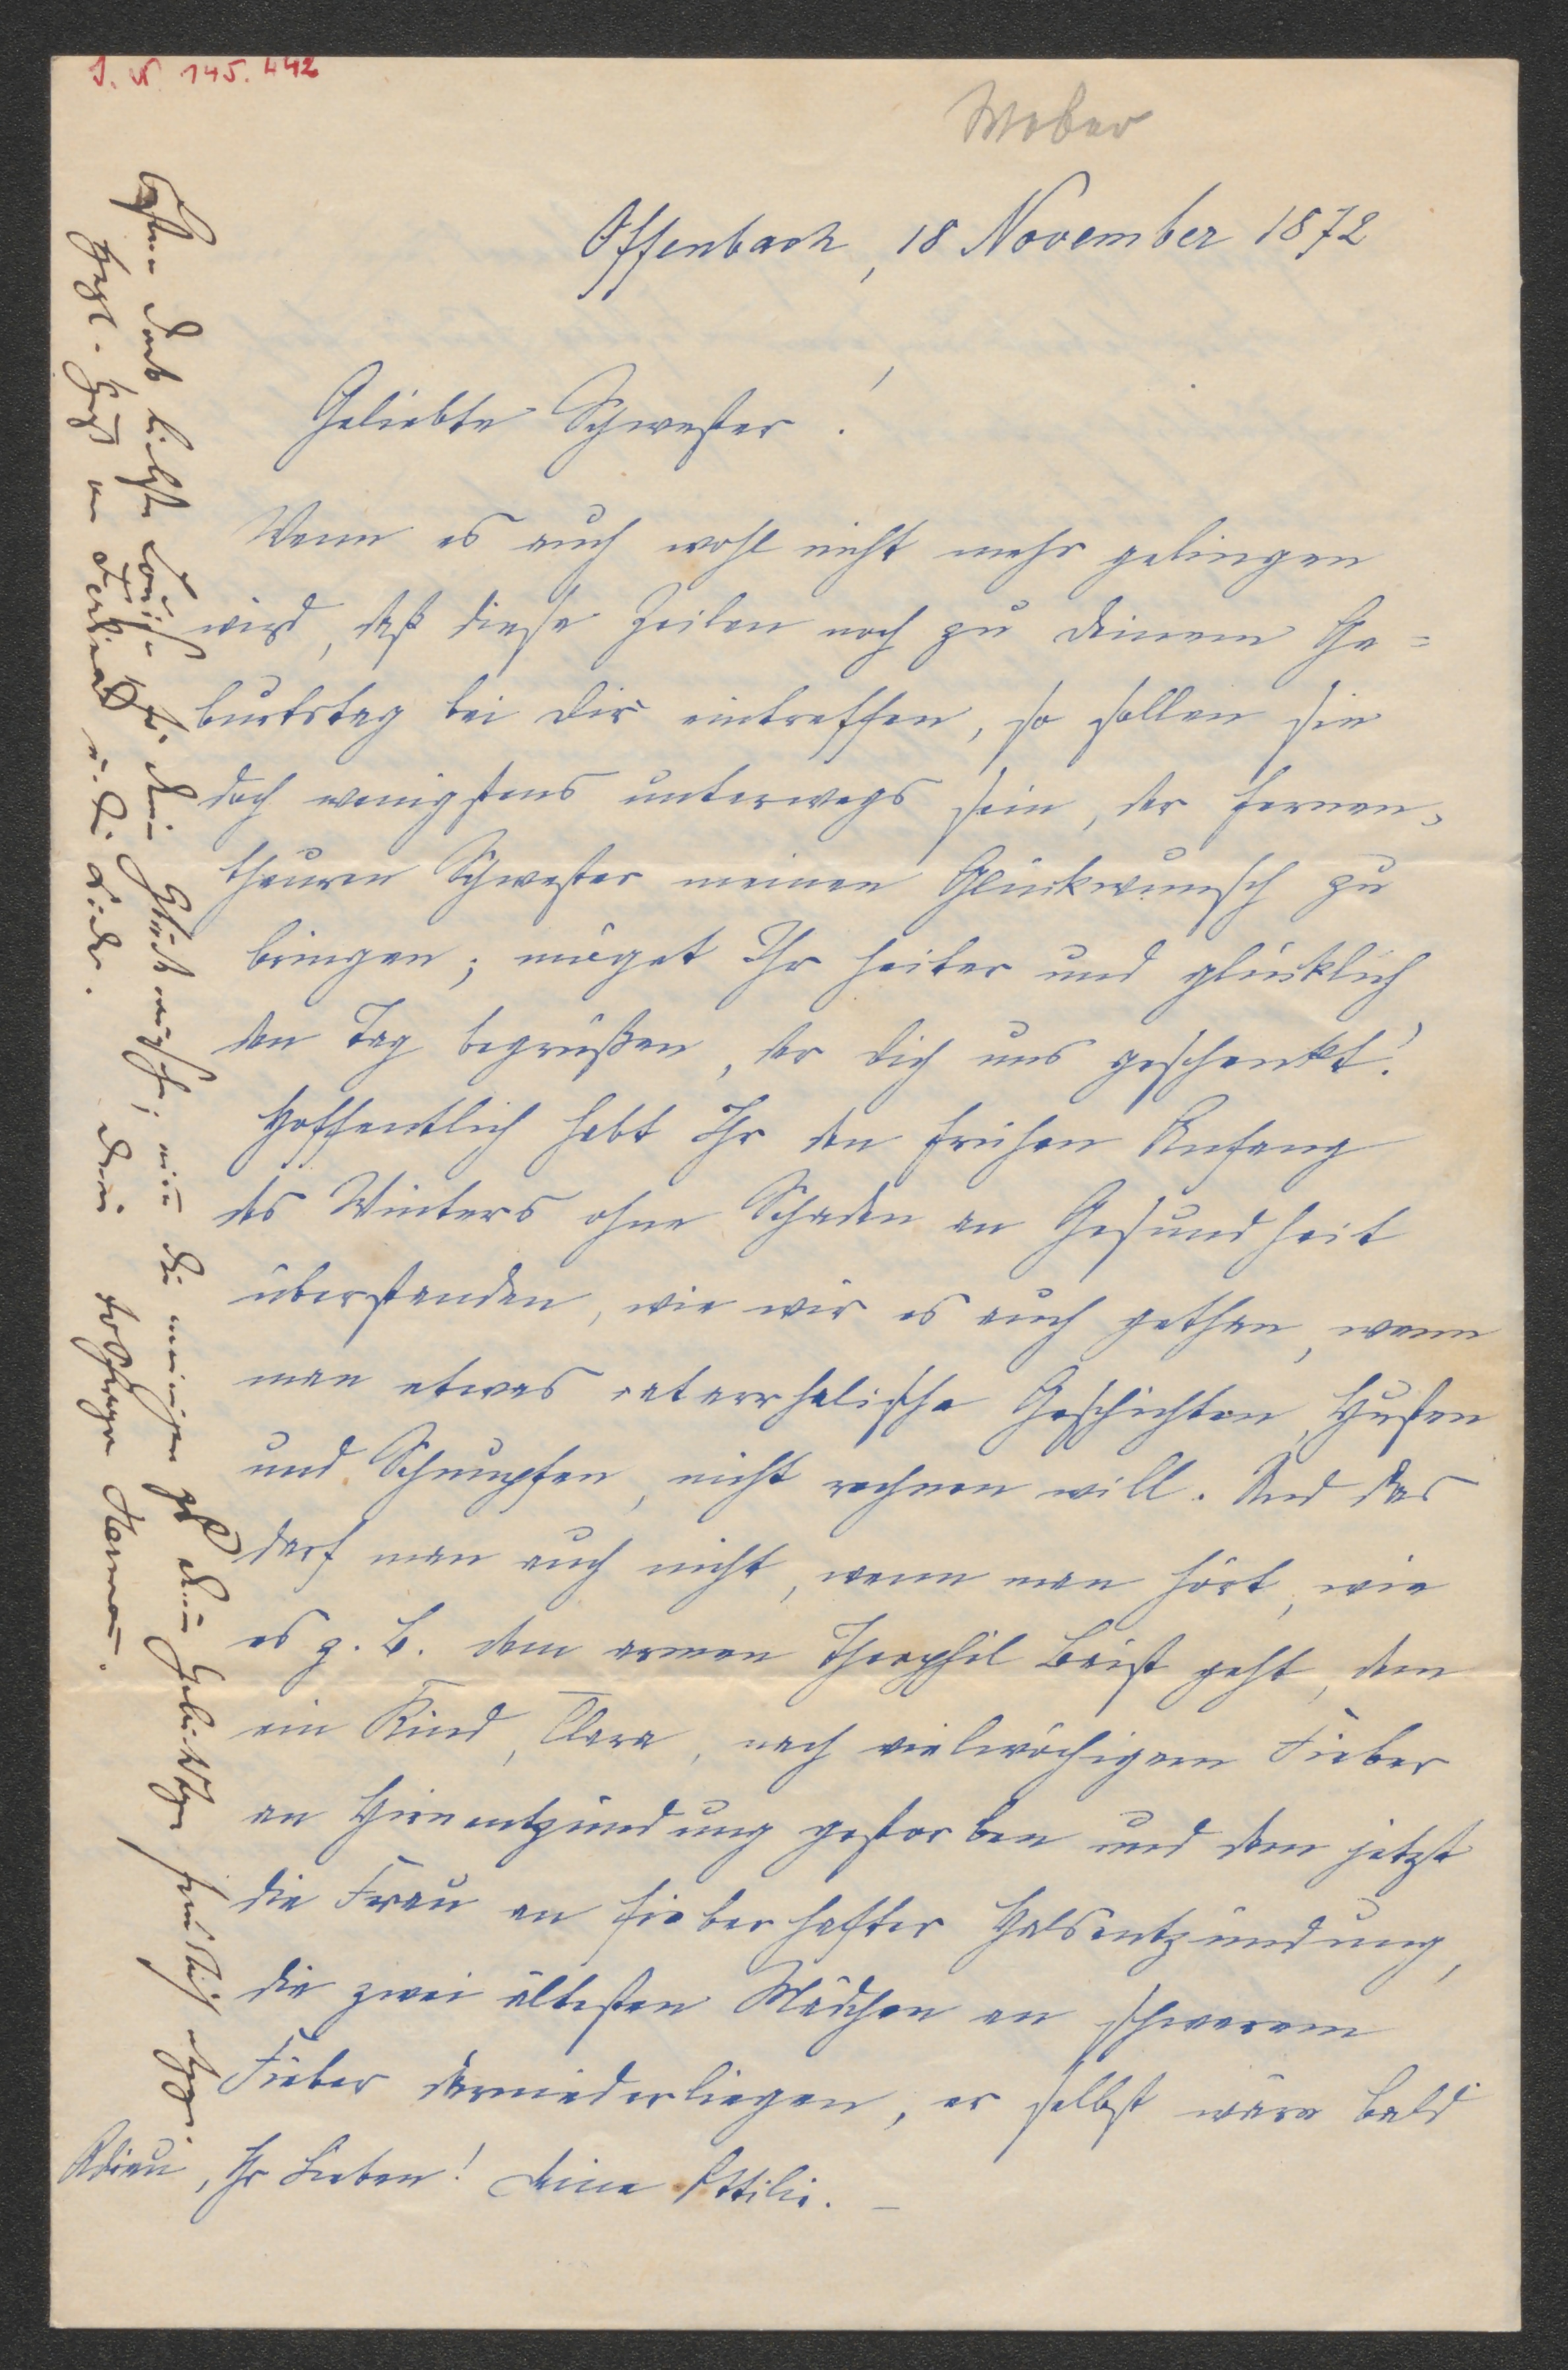 J. N. 145.442
Weber
Offenbach, 18 November 1872
Geliebte Schwester!
Wenn es auch wohl nicht mehr gelingen
wird, daß diese Zeilen noch zu deinem Ge=
burtstag bei dir eintreffen, so sollen sie
doch wenigstens unterwegs sein, der fernen,
theuren Schwester meinen Glückwunsch zu
bringen; möget Ihr heiter und glücklich
den Tag begrüßen, der dich uns geschenkt!
Hoffentlich habt Ihr den frühen Anfang
des Winters ohne Schaden an Gesundheit
überstanden, wie wir es auch gethan, wenn
man etwas catarrhalische Geschichten, Husten
und Schnupfen, nicht rechnen will. Und das
darf man auch nicht, wenn man hört, wie
es z. B. dem armen Theophil geht, dem
ein Kind, Clara, nach vielwöchigem Fieber
an Hirnentzündung gestorben und dem jetzt
die Frau an fieberhafter Halsentzündung,
die zwei ältesten Mädchen an schwerem
Fieber darniederliegen, er selbst wäre bald
Adieu, Ihr Lieben! Deine Ottilie. –
Dank liebste Louise für deine Glückwünsche; die meinigen
Herzl. Gruß an Ferdinand u. die Kinder. Dein Herman.